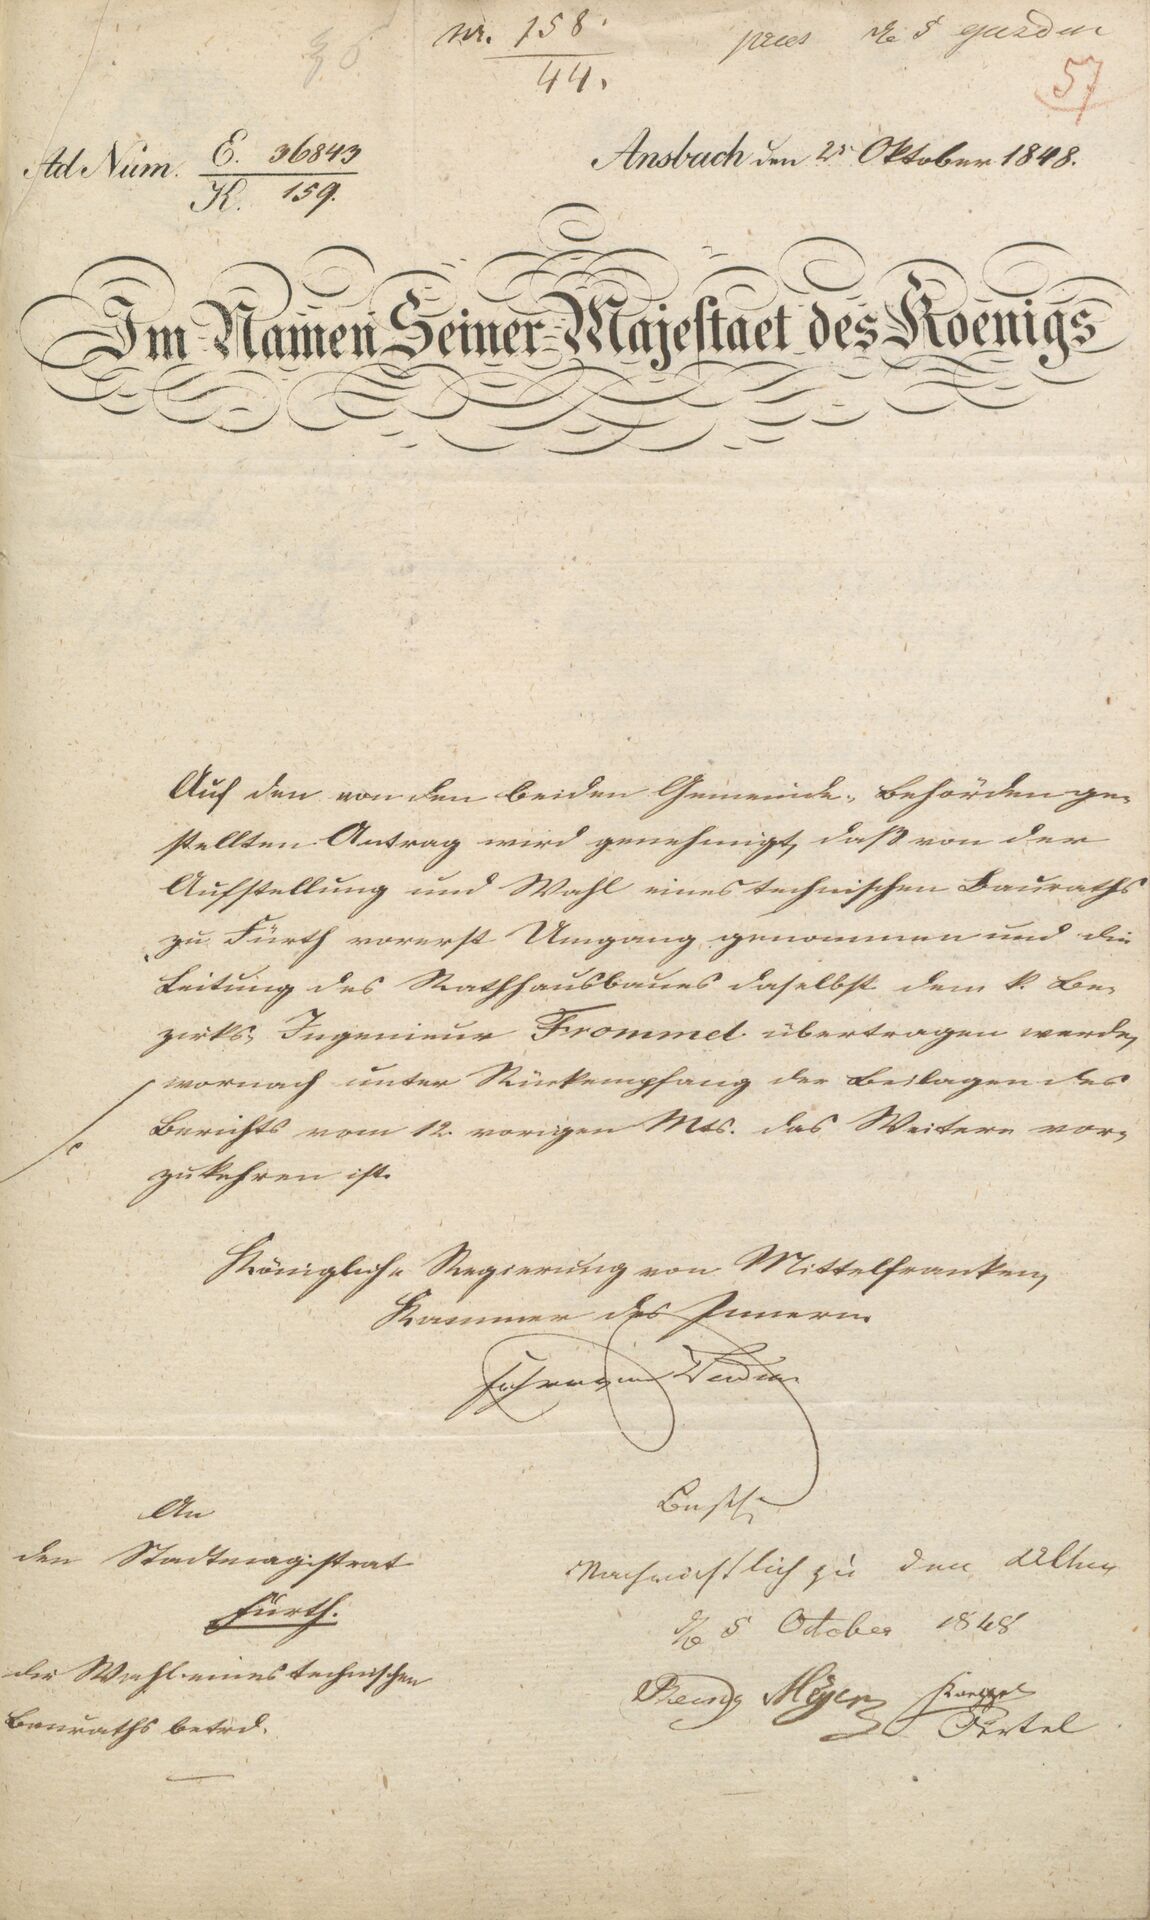 Nr. 158.
44.
57
Ad Num. E. 36843
K. 159.
Ansbach den 2t Oktober 1848.
Im Namen Seiner Majestaet des Koenigs
Auf den von den beiden Gemeinde-Behörden ge-
stellten Antrag wird genehmigt, daß von der
Aufstellung und Wahl eines technischen Bauraths
zu Fürth vorerst Umgang genommen und die
Leitung des Rathhausbaues daselbst dem k. Be-
zirks-Ingenieur Frommel übertragen werde,
wornach unter Rückempfang der Beilagen des
Berichts vom 12. vorigen Mts. das Weitere vor-
zukehren ist.
Königliche Regierung von Mittelfranken,
Kammer des Innern.
An
den Stadtmagistrat
Fürth.
der Wahl eines technischen
Bauraths betrd.
Nachrichtlich zu den Akten
5 October 1848
Meyer